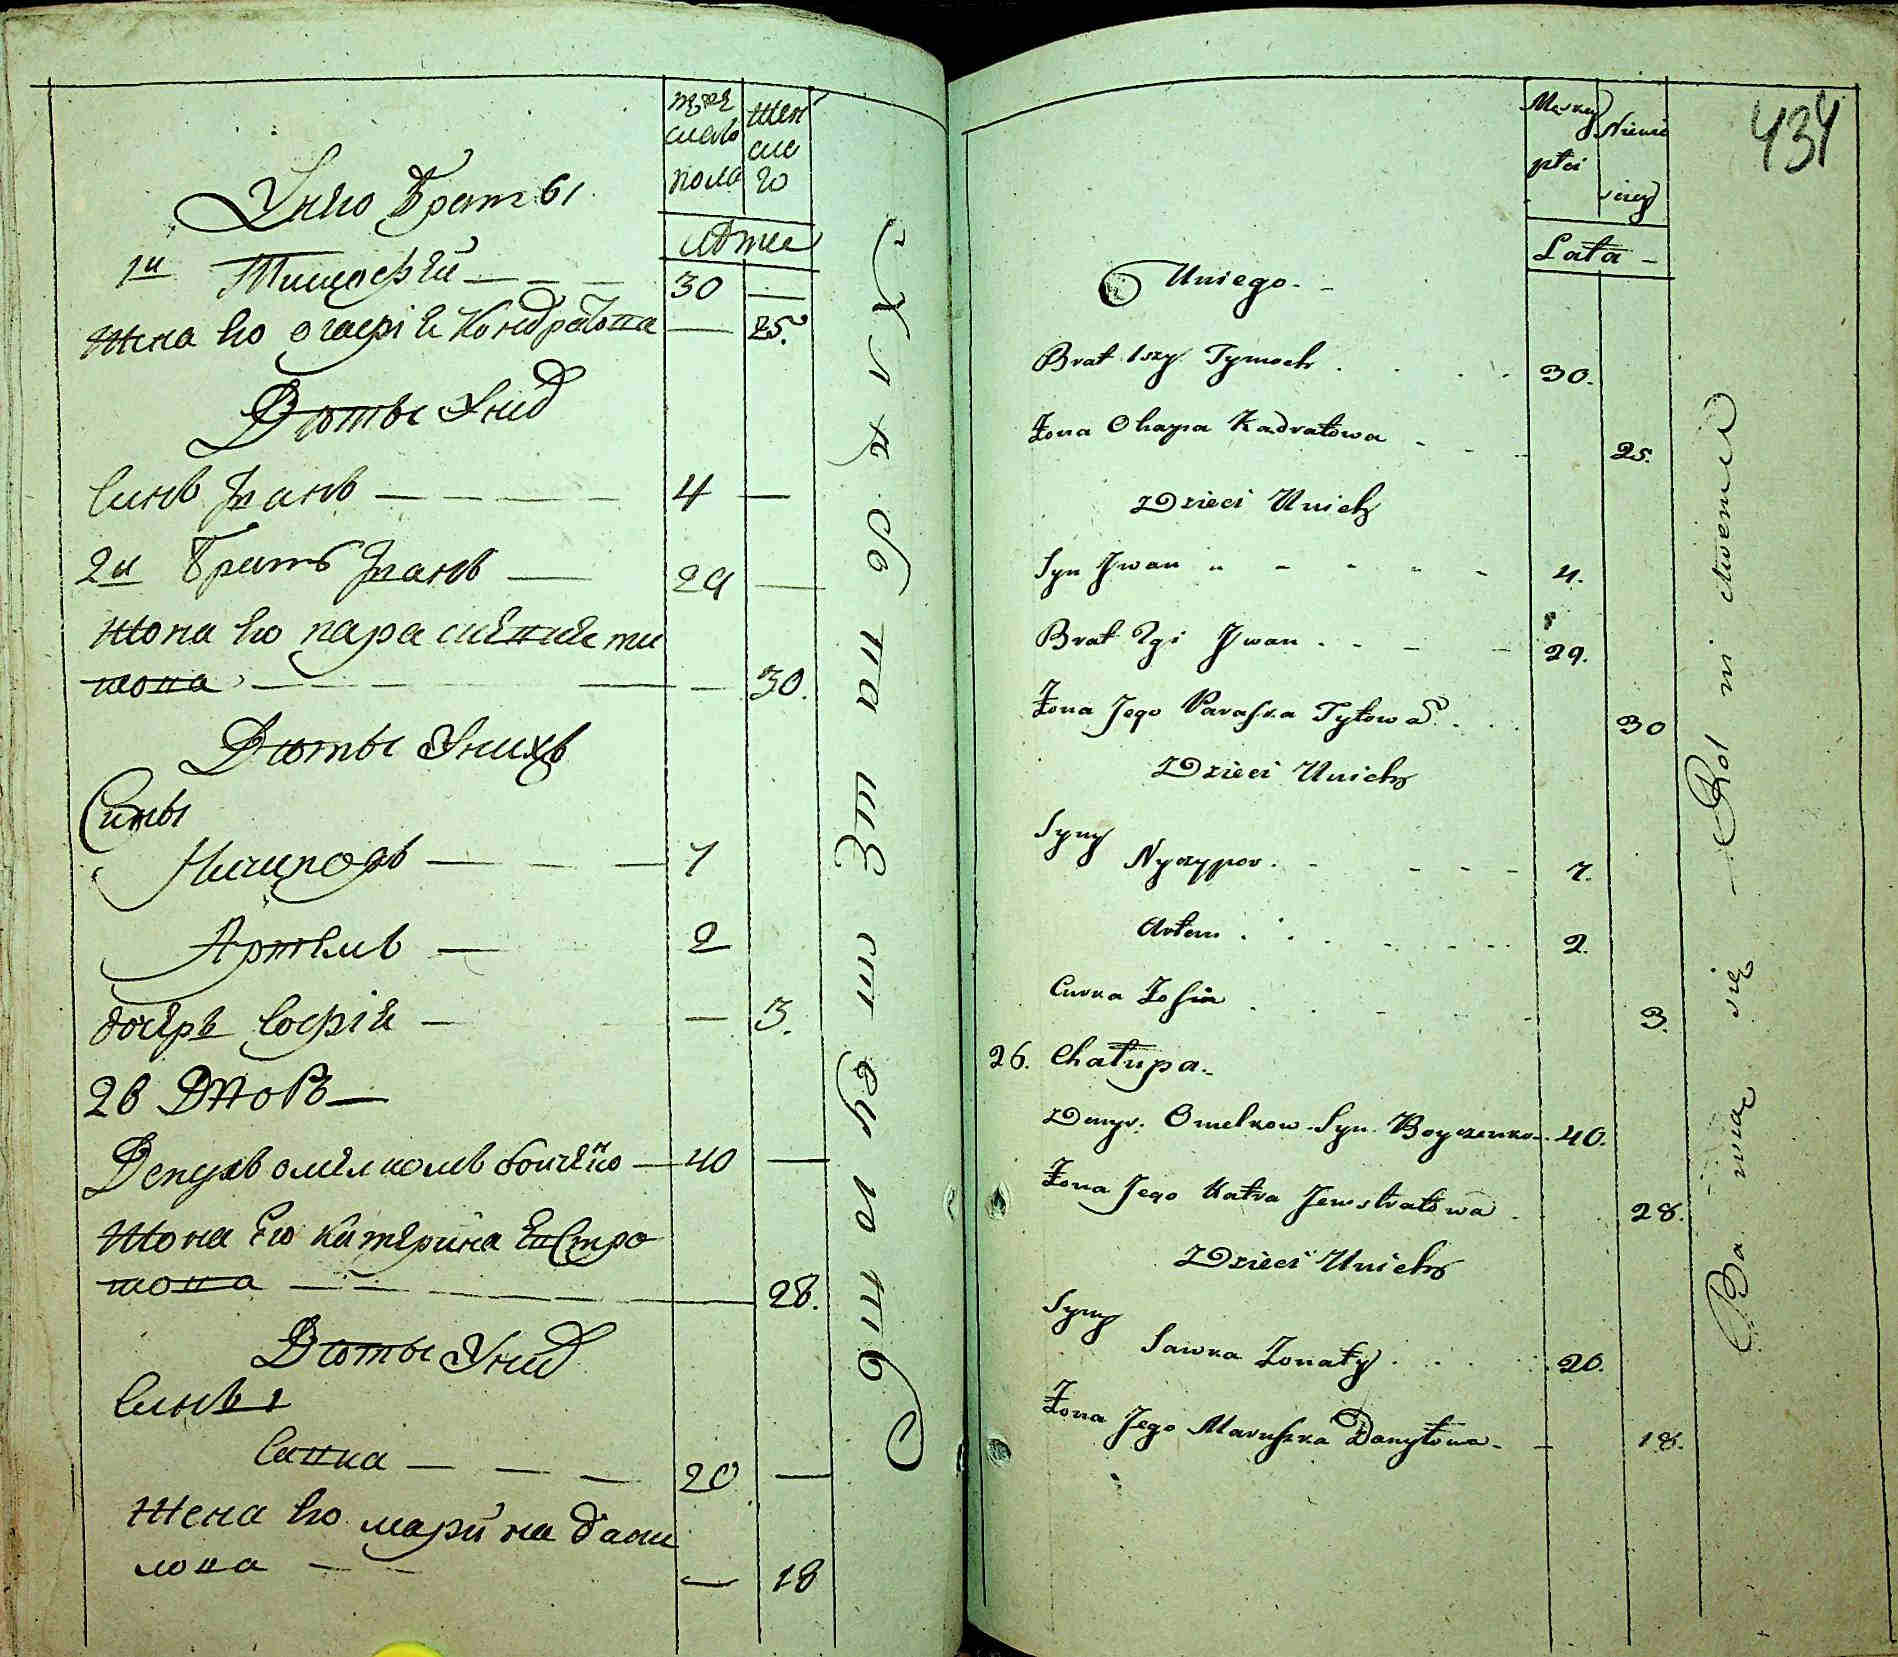 мужескаго пола
женскаго
лѣта
Унего Браты
1й Тимофѣй — — — 30 —
Жена его Агафія Кондратова — 25.
Дѣты Унихъ
Синъ Иванъ — — — 4 —
2й Братъ Иванъ — 29 —
Жона его параскевия ти
това — — — 30.
Дѣты Унихъ
Сины
Ничипоръ — — — 7
Артемъ — — 2
дочеръ Софія — — 3.
26 Дворъ —
омелковъ — 40 —
Жона Его Катерина Евстра
това — — — 28.
Дѣты Унихъ
Сины
Савка — — — 20 —
Жена его марина дани
лова — — — 18
434
Męskiey płci
Niewieściey
Lata -
Uniego. -
Brat 1szy Tymoch . . . . 30.
Żona Ohapia Kadratowa - - - 25.
Dzieci Unich
Syn Jwan " - - - - 4.
Brat 2gi Jwan . - - - 29.
Żona Jego Paraska Tytowa . . . 30
Dzieci Unich
Syny
Nyczypor . - - - - 7.
Artem . . . . . . 2.
Curka Zofia . . . . 3.
26. Chałupa.
Omelkow Syn Boyczenko - 40.
Żona Jego Katra Jewstratowa . 28.
Dzieci Unich
Syny
Sawka Żonaty . . . . 20.
Żona Jego Maruszka Danyłowa - - 18.